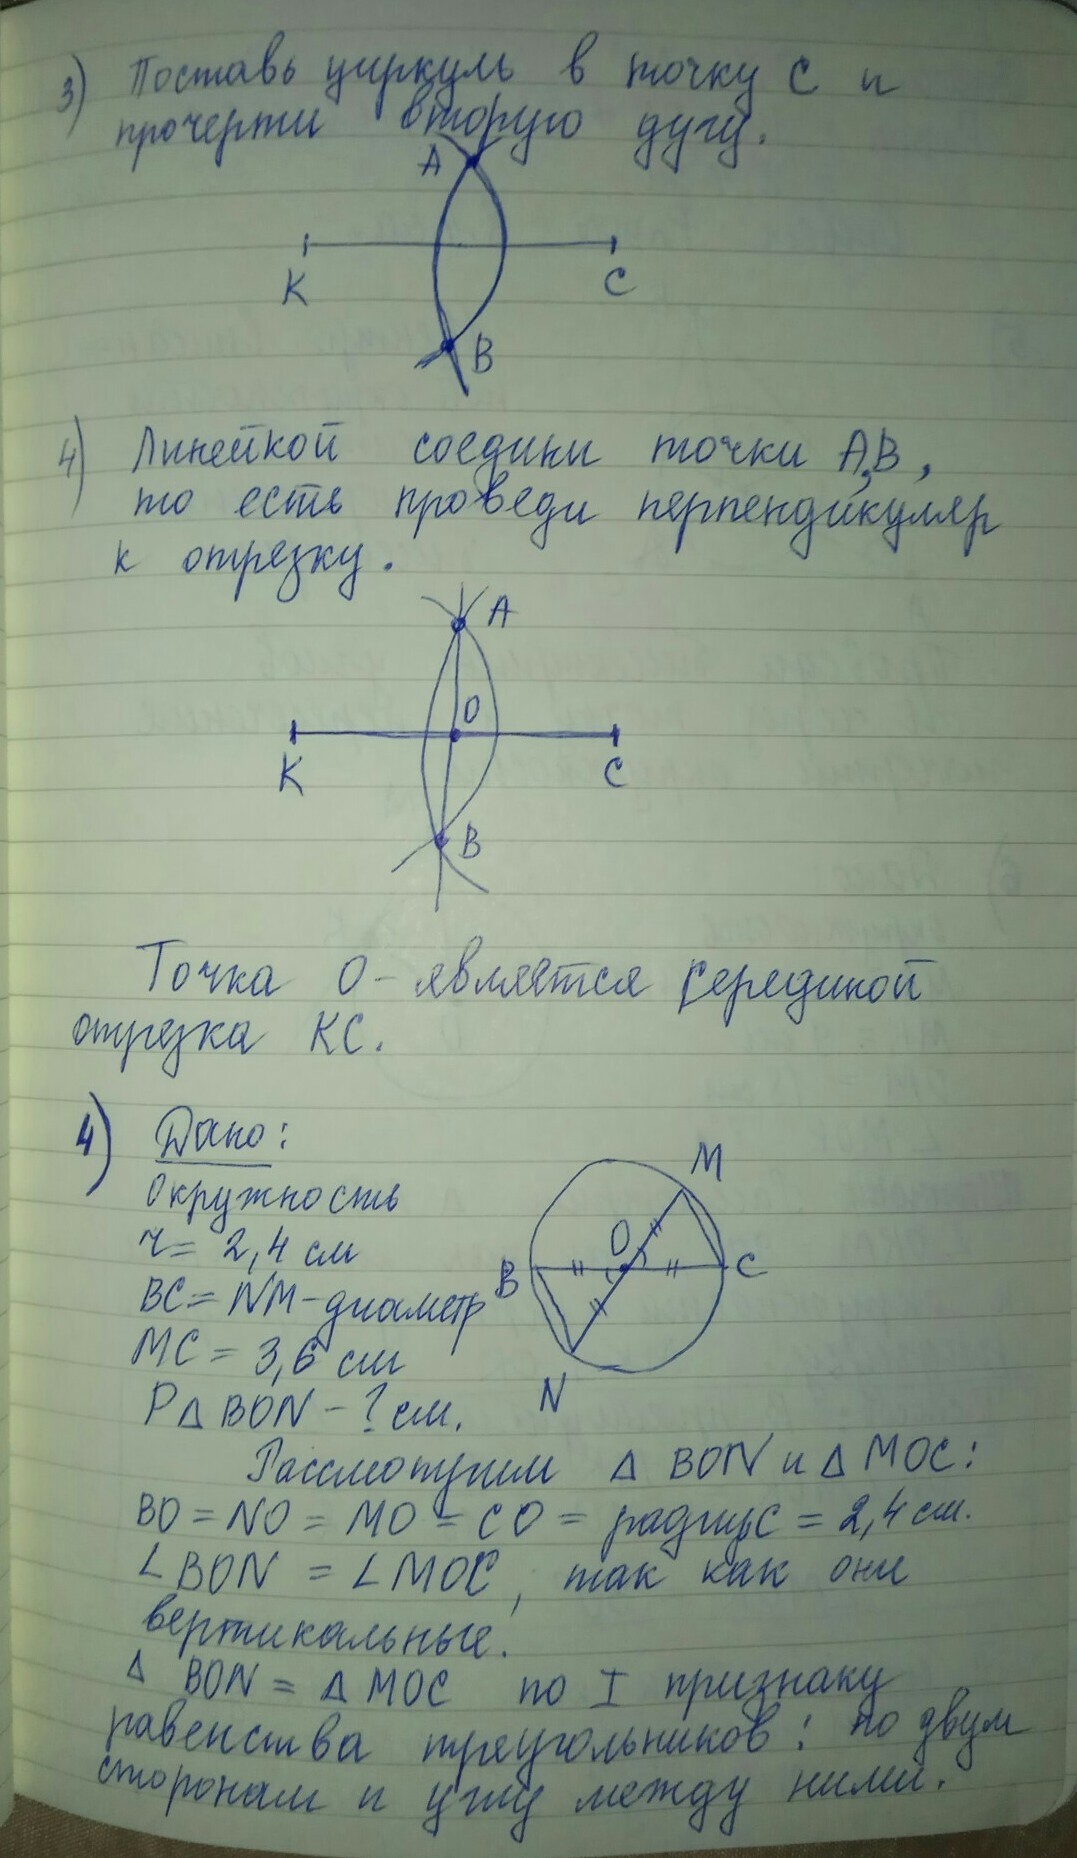 3) Поставь циркуль в точку С и
прочерти вторую дугу.
А
К
С
В
4) Линейкой соедини точки А,В,
то есть проведи перпендикуляр
к отрезку.
А
О
К
С
В
Точка О- является серединой
отрезка КС.
4) Дано:
окружность
r= 2,4 см
ВС= NM-диаметр
МС = 3,6 см
Р∆ BON - ? см.
М
О
В
С
N
Рассмотрим ∆ BON и ∆ МОС:
ВО = NO = МО = СО = радиус = 2,4 см.
∠BON = ∠МОС, так как они
вертикальные.
∆ BON = ∆ МОС по I признаку
равенства треугольников: по двум
сторонам и углу между ними.